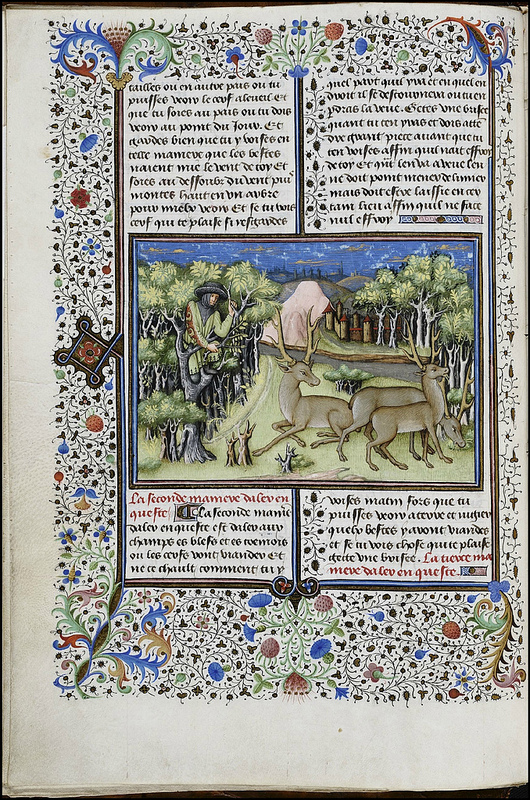 tailles ou en autre pais ou tu
puisses veoir le cerf a leueil Et
que tu soies au pais ou tu dois
veoir au point du Jour. Et
gardes bien que tu y voises en
telle maniere que les bestes
naient mie le vent de toy Et
soies au dessoubz du vent puis
montes hault en vn arbre
pour mieulx veoir Et se tu vois
cerf qui te plaise si resgardes
quel part quil yra et en quel en
droit il se
pdras la veue. Gectes vne brisee
quant tu ten yras et dois atte
dre grant piece auant que tu
ten voises affin quil nait effroy
de toy Et qnt len va a veue len
ne doit point mener de limier
mais doit estre laissie en cer
tain lieu affin quil ne face
nul effroy
La seconde maniere daler en
queste La seconde manie
daler en queste est daler aux
champs es bles et es
ou les cerfs vont viander Et
ne te chault comment tu y
voises matin fors que tu
puisses veoir a terre et iugier
quelz bestes y auront viandes
et se tu vois chose qui te plaise
gecte vne brisee. La tierce ma
niere daler en queste